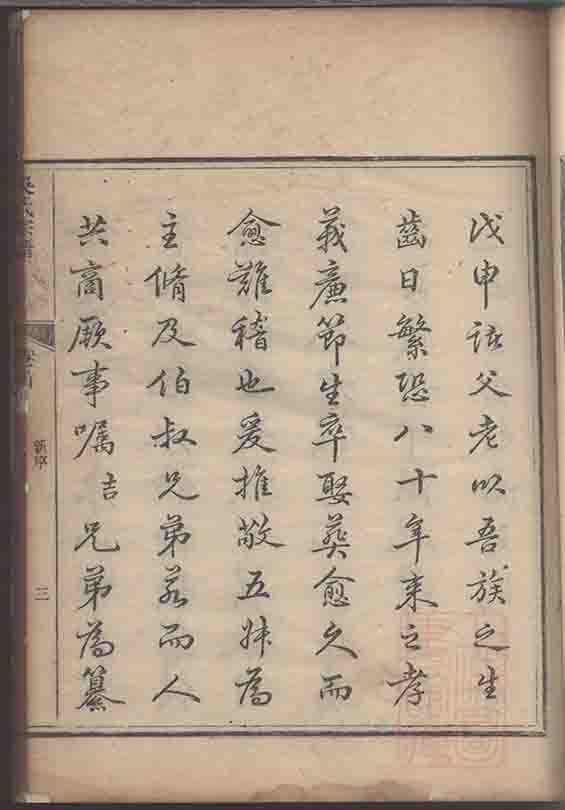 戊申諸父老以吾族之生
齒日繁恐八十年來之孝
義廉節生卒娶葬愈久而
愈難稽也爰推敬五叔為
主脩及伯叔兄弟若而人
共商厥事嘱吉兄弟為纂
新序
三